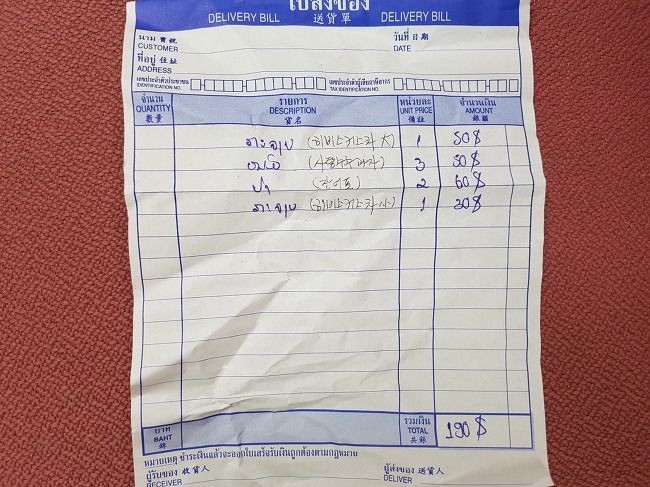 ใบส่งของ
DELIVERY BILL 送貨單 DELIVERY BILL
นาม 寶號 วันที่ 日期
CUSTOMER DATE
ที่อยู่ 住址
ADDRESS
เลขประจำตัวประชาชน เลขประจำตัวผู้เสียภาษีอากร
IDENTIFICATION NO. TAX IDENTIFICATION NO.
จำนวน รายการ หน่วยละ จำนวนเงิน
QUANTITY DESCRIPTION UNIT PRICE AMOUNT
數量 貨名 備註 銀額
(히비스커스차 大) 1 50฿
3 50฿
2 60฿
(히비스커스차 小) 1 30฿
บาท รวมเงิน
BAHT TOTAL 190฿
銖 共銀
หมายเหตุ ชำระเงินแล้วจะออกใบเสร็จรับเงินถูกต้องตามกฎหมาย
ผู้รับของ 收貨人 ผู้ส่งของ 送貨人
RECEIVER DELIVER